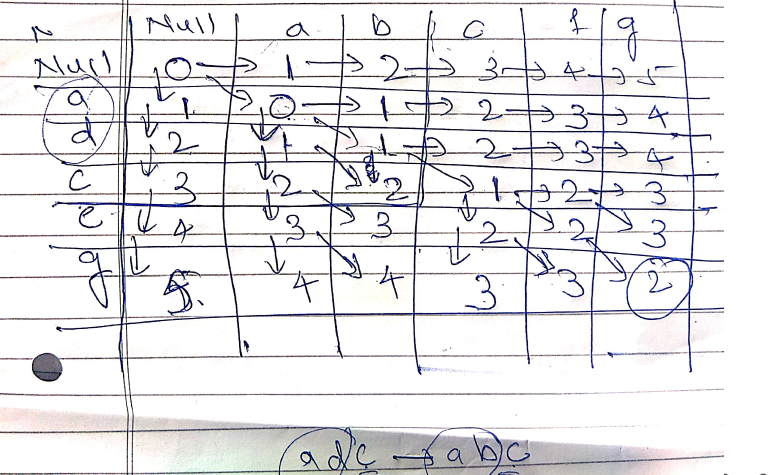 Null a b c f g
Null 0 → 1 → 2 → 3 → 4 → 5
a 1 0 → 1 → 2 → 3 → 4
d 2 1 1 → 2 → 3 → 4
c 3 2 2 1 → 2 → 3
e 4 3 3 2 2 3
g 5. 4 4 3 3 2
adc → abc